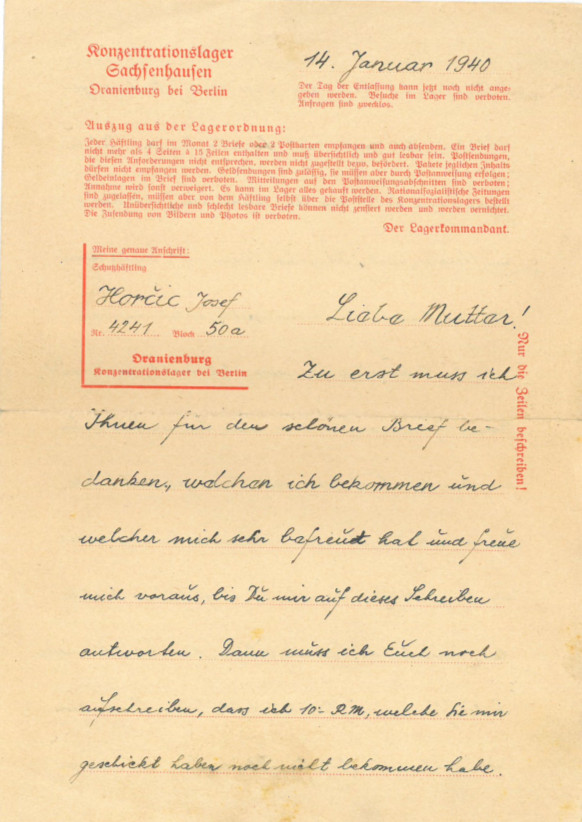 Konzentrationslager
Sachsenhausen
Oranienburg bei Berlin
14. Januar 1940
Der Tag der Entlassung kann jetzt noch nicht ange-
geben werden. Besuche im Lager sind verboten.
Anfragen sind zwecklos.
Auszug aus der Lagerordnung:
Jeder Häftling darf im Monat 2 Briefe oder 2 Postkarten empfangen und auch absenden. Ein Brief darf
nicht mehr als 4 Seiten à 15 Zeilen enthalten und muß übersichtlich und gut lesbar sein. Postsendungen,
die diesen Anforderungen nicht entsprechen, werden nicht zugestellt bezw. befördert. Pakete jeglichen Inhalts
dürfen nicht empfangen werden. Geldsendungen sind zulässig, sie müssen aber durch Postanweisung erfolgen;
Geldeinlagen im Brief sind verboten. Mitteilungen auf den Postanweisungsabschnitten sind verboten;
Annahme wird sonst verweigert. Es kann im Lager alles gekauft werden. Nationalsozialistische Zeitungen
sind zugelassen, müssen aber von dem Häftling selbst über die Poststelle des Konzentrationslagers bestellt
werden. Unübersichtliche und schlecht lesbare Briefe können nicht zensiert werden und werden vernichtet.
Die Zusendung von Bildern und Photos ist verboten.
Der Lagerkommandant.
Meine genaue Anschrift:
Schutzhäftling
Horčic Josef
Nr. 4241 Block 50a
Oranienburg
Konzentrationslager bei Berlin
Nur die Zeilen beschreiben!
Liebe Mutter!
Zu erst muss ich
Ihnen für den schönen Brief be-
danken, welchen ich bekommen und
welcher mich sehr befreut hat und freue
mich voraus, bis Du mir auf dieses Schreiben
antworten. Dann muss ich Euch noch
aufschreiben, dass ich 10.- RM, welche Sie mir
geschickt haben noch nicht bekommen habe.